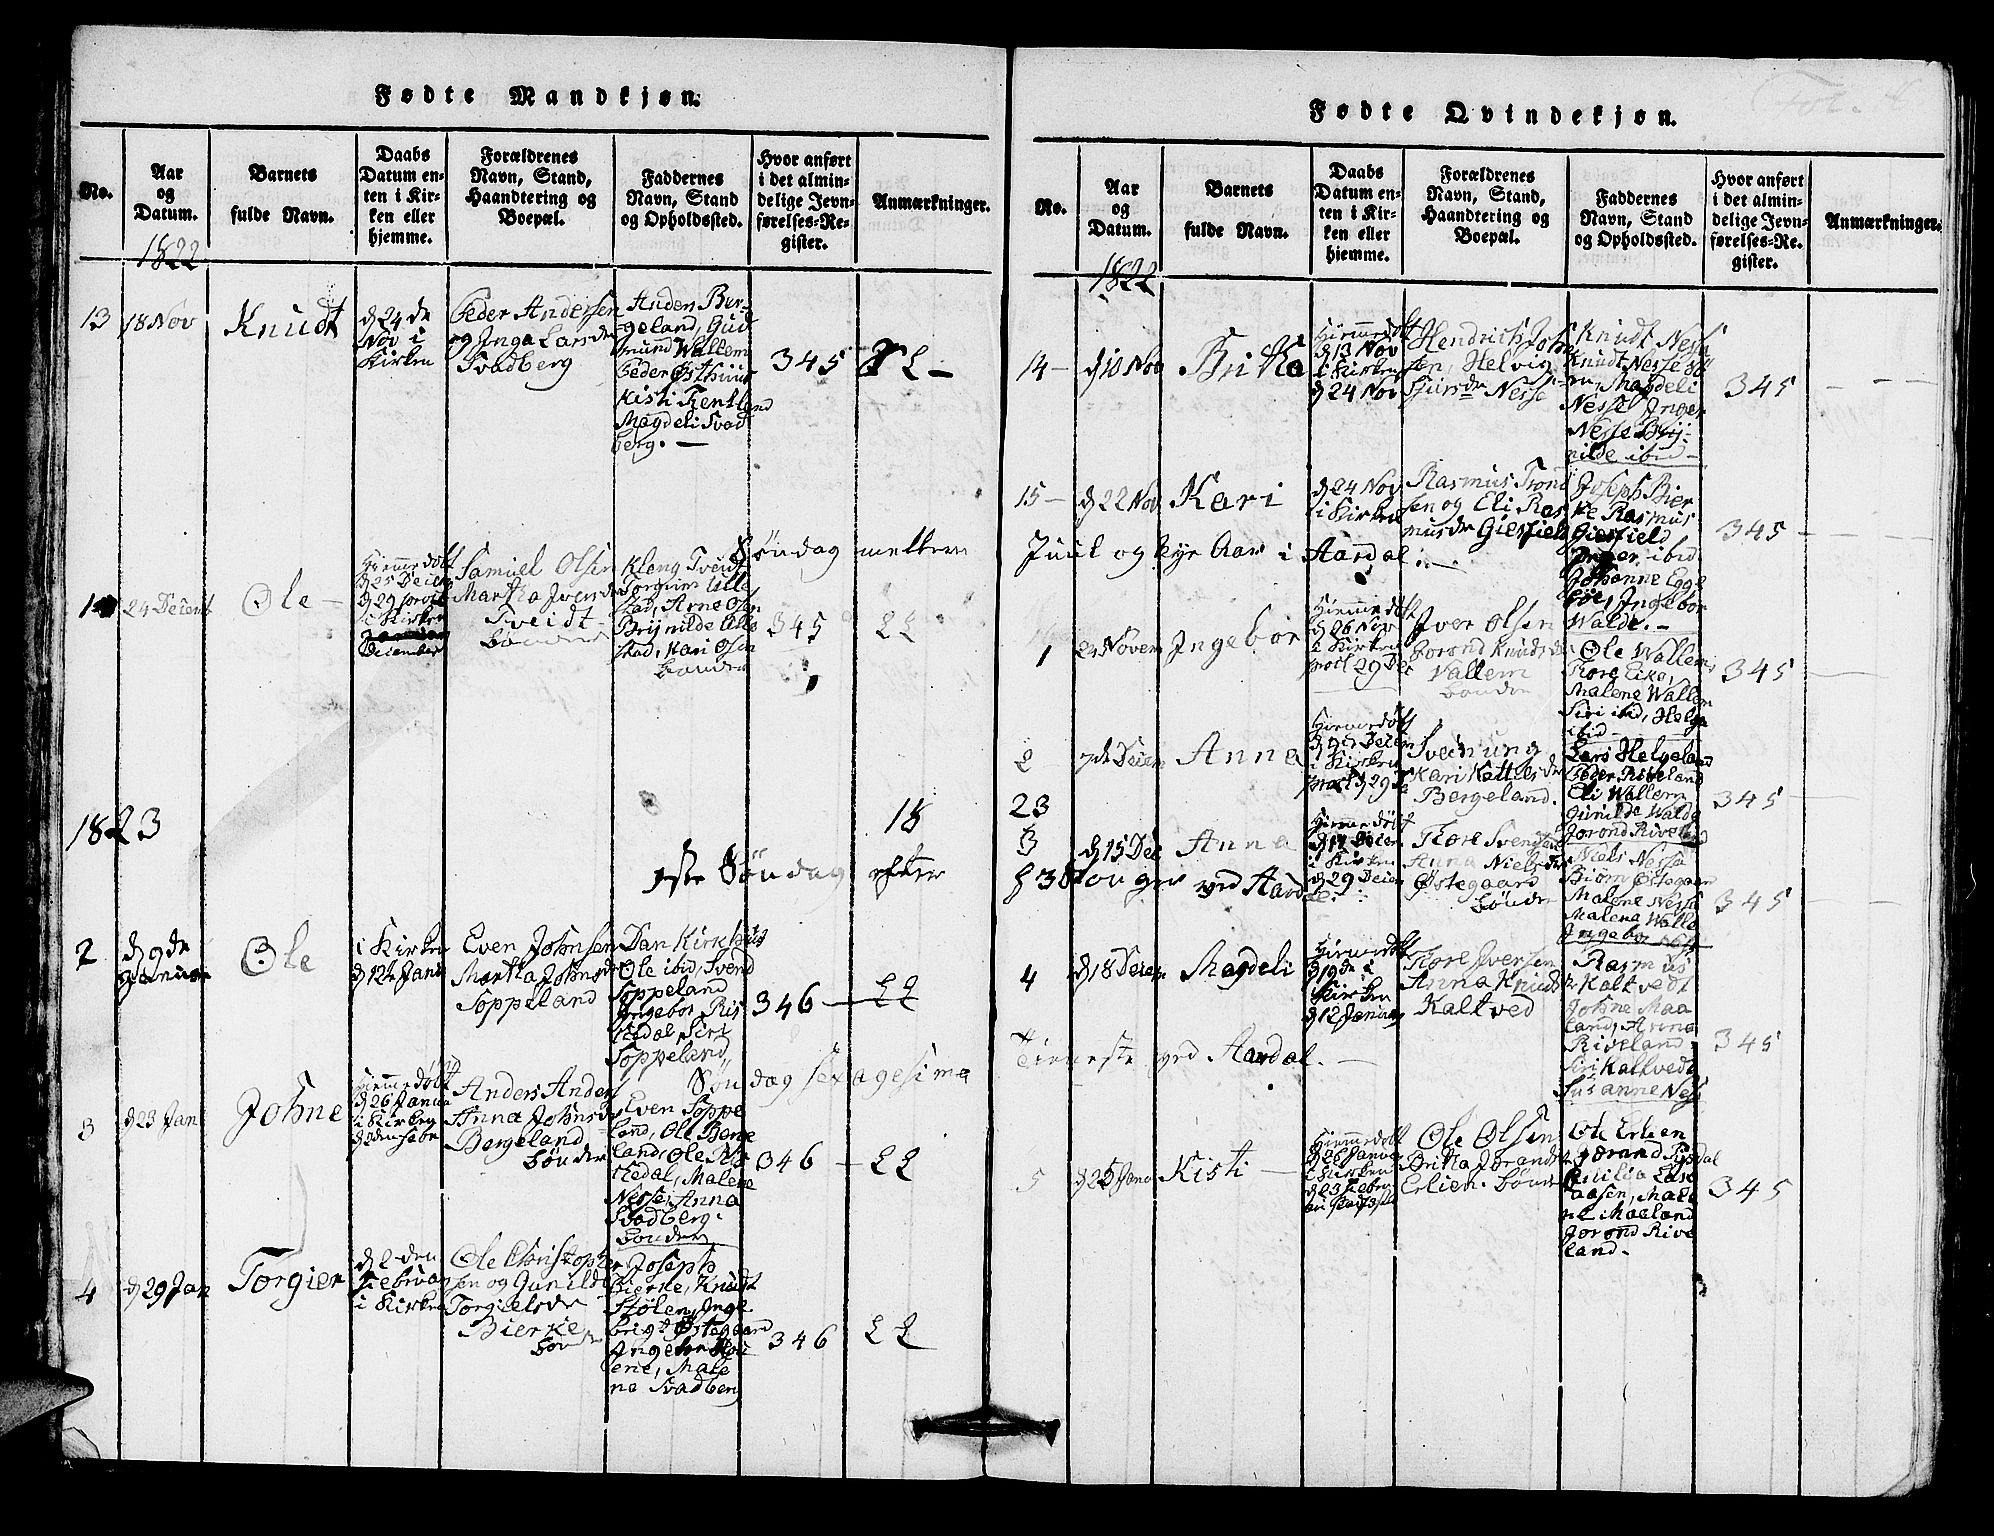 Fødte Mandkjøn.
No.
Aar
og
Datum.
Barnets
fulde Navn.
Daabs
Datum en-
ten i Kir-
ken eller
hjemme.
Forældrenes
Navn, Stand,
Haandtering og
Boepæl.
Faddernes
Navn, Stand
og Opholdssted.
Hvor anført
i det almin-
delige Jevn-
førelses-Re-
gister.
Anmærkninger.
1822
13
18 Nov
Knudt
d 24 de
Nov i
Kirken
Peder Andersen
og Inga Larsdr
Svadberg
Anden Ber-
geland, Gud
mund Wallem
Peder Østhuus
Kisti Tentland
Magdeli Svad
berg. —
345
Søndag mellem
24 Decemb
Ole —
Hiemmedøbt
d 25 Decem
i Kirken
December
Samuel Olsen
Martha Iversdr
Tveidt
bønder
Kleng Tveidt
Torgrim Ulle
stad, Arne Olsen
Brynilde Ulle
stad, Kari Olsen
bønder
345
1823
18
1ste Søndag efter
2
d 9 de
Januar
Ole
i Kirken
d 12te Janu
Even Johnsen
Martha Johnsdr
Soppeland
Dan Kirkhus
Ole ibid, Svend
Soppeland
Ingebor Ris
tedal, Siri
Soppeland
346 —
3
d 23 Jan
Johne
Hiemmedøbt
d 26 Janua
i Kirken
Anders Anders
Anna Johnsdr
Bergeland
bønder
Søndag sexagesima
Even Soppe
land, Ole Berge
land, Ole Ris
tedal, Malene
Nesse, Anna
Svadberg.
bønder
346 —
4
d 29 Jan
Torgier
d 2 den
Februar
i Kirken
Ole Christoph
sen og Gunild
Torgielsdr
Bierke
bønder
Joseph
Bierke, Knudt
Stølen, Inge
brigt Østegaard
Male
ne Svadberg
346
Fødte Qvindekjøn.
No.
Aar
og
Datum.
Barnets
fulde Navn.
Daabs
Datum en-
ten i Kir-
ken eller
hjemme.
Forældrenes
Navn, Stand,
Haandtering og
Boepæl.
Faddernes
Navn, Stand
og Opholdssted.
Hvor anført
i det almin-
delige Jevn-
førelses-Re-
gister.
Anmærkninger.
1822
14 —
d 10 Nov
Brita
Hiemmedøbt
d 13 Nov
i Kirken
d 24 Nov
Hendrich John
sen, Helvig
Siursdr Nesse
Knudt Nesse
Knudt Nesse
Magdeli
Nesse Inger
Nesse Bryn-
nilde ibid —
345
15 —
d 22 Nov
Kari
d 24 Nov
i Kirken
Rasmus Trond
sen og Eli Ras
musdr Gierfield
Joseph Bier
ke Rasmus
Gierfield
Inger ibid
Johanne Egge
bøe, Ingebor
Walde. —
345
Juul og Nye Aar i Aardal.
1
24 Novem
Ingebor
Hiemmedøbt
d 26 Nov
i Kirken
præst 29 Dec
Iver Olsen
Jorond Knudsdr
Vallem
bønder
Ole Wallem
Tore Eike,
Malene Wallem
Siri ibid, Helga
ibid —
345
2
7de Decem
Anna
Hiemmedøbt
i Kirken
Sveinung
Kari Kettelsdr
Bergeland.
Lars Helgeland
Peder Riveland
Eli Wallem
Gunilde Walde
Jorond Riveland
345
23
3
d 15 Dec
Anna
Hiemmedøbt
i Kirken
d 29 Decem
Tore Svendsen
Anna Nielsdr
Østegaard
bønder
Niels Nesse
Biørn Østegaard
Malene Nesse
Malena Walle
345
ved Aardal
4
d 18 Decem
Magdeli
Hiemmedøbt
d 19 de i
Kirken
d 12 Januar
Tore Iversen
Anna Knudsdr
Kaltved
Rasmus
Kaltvedt
Johne Maa
land, Anna
Riveland
Siri Kaltvedt
Susanne Nesse
345
Tieneste ved Aardal.
5
d 25 Janu
Kisti —
Hiemmedøbt
d 26 Janua
i Kirken
d 23 Febru
Ole Olsen
Britha Jorandsdr
Erlien. bønder
Ole Erlien
Gunilda Lars
aasen, Male
ne Maaland
Jorond Rive
land —
345